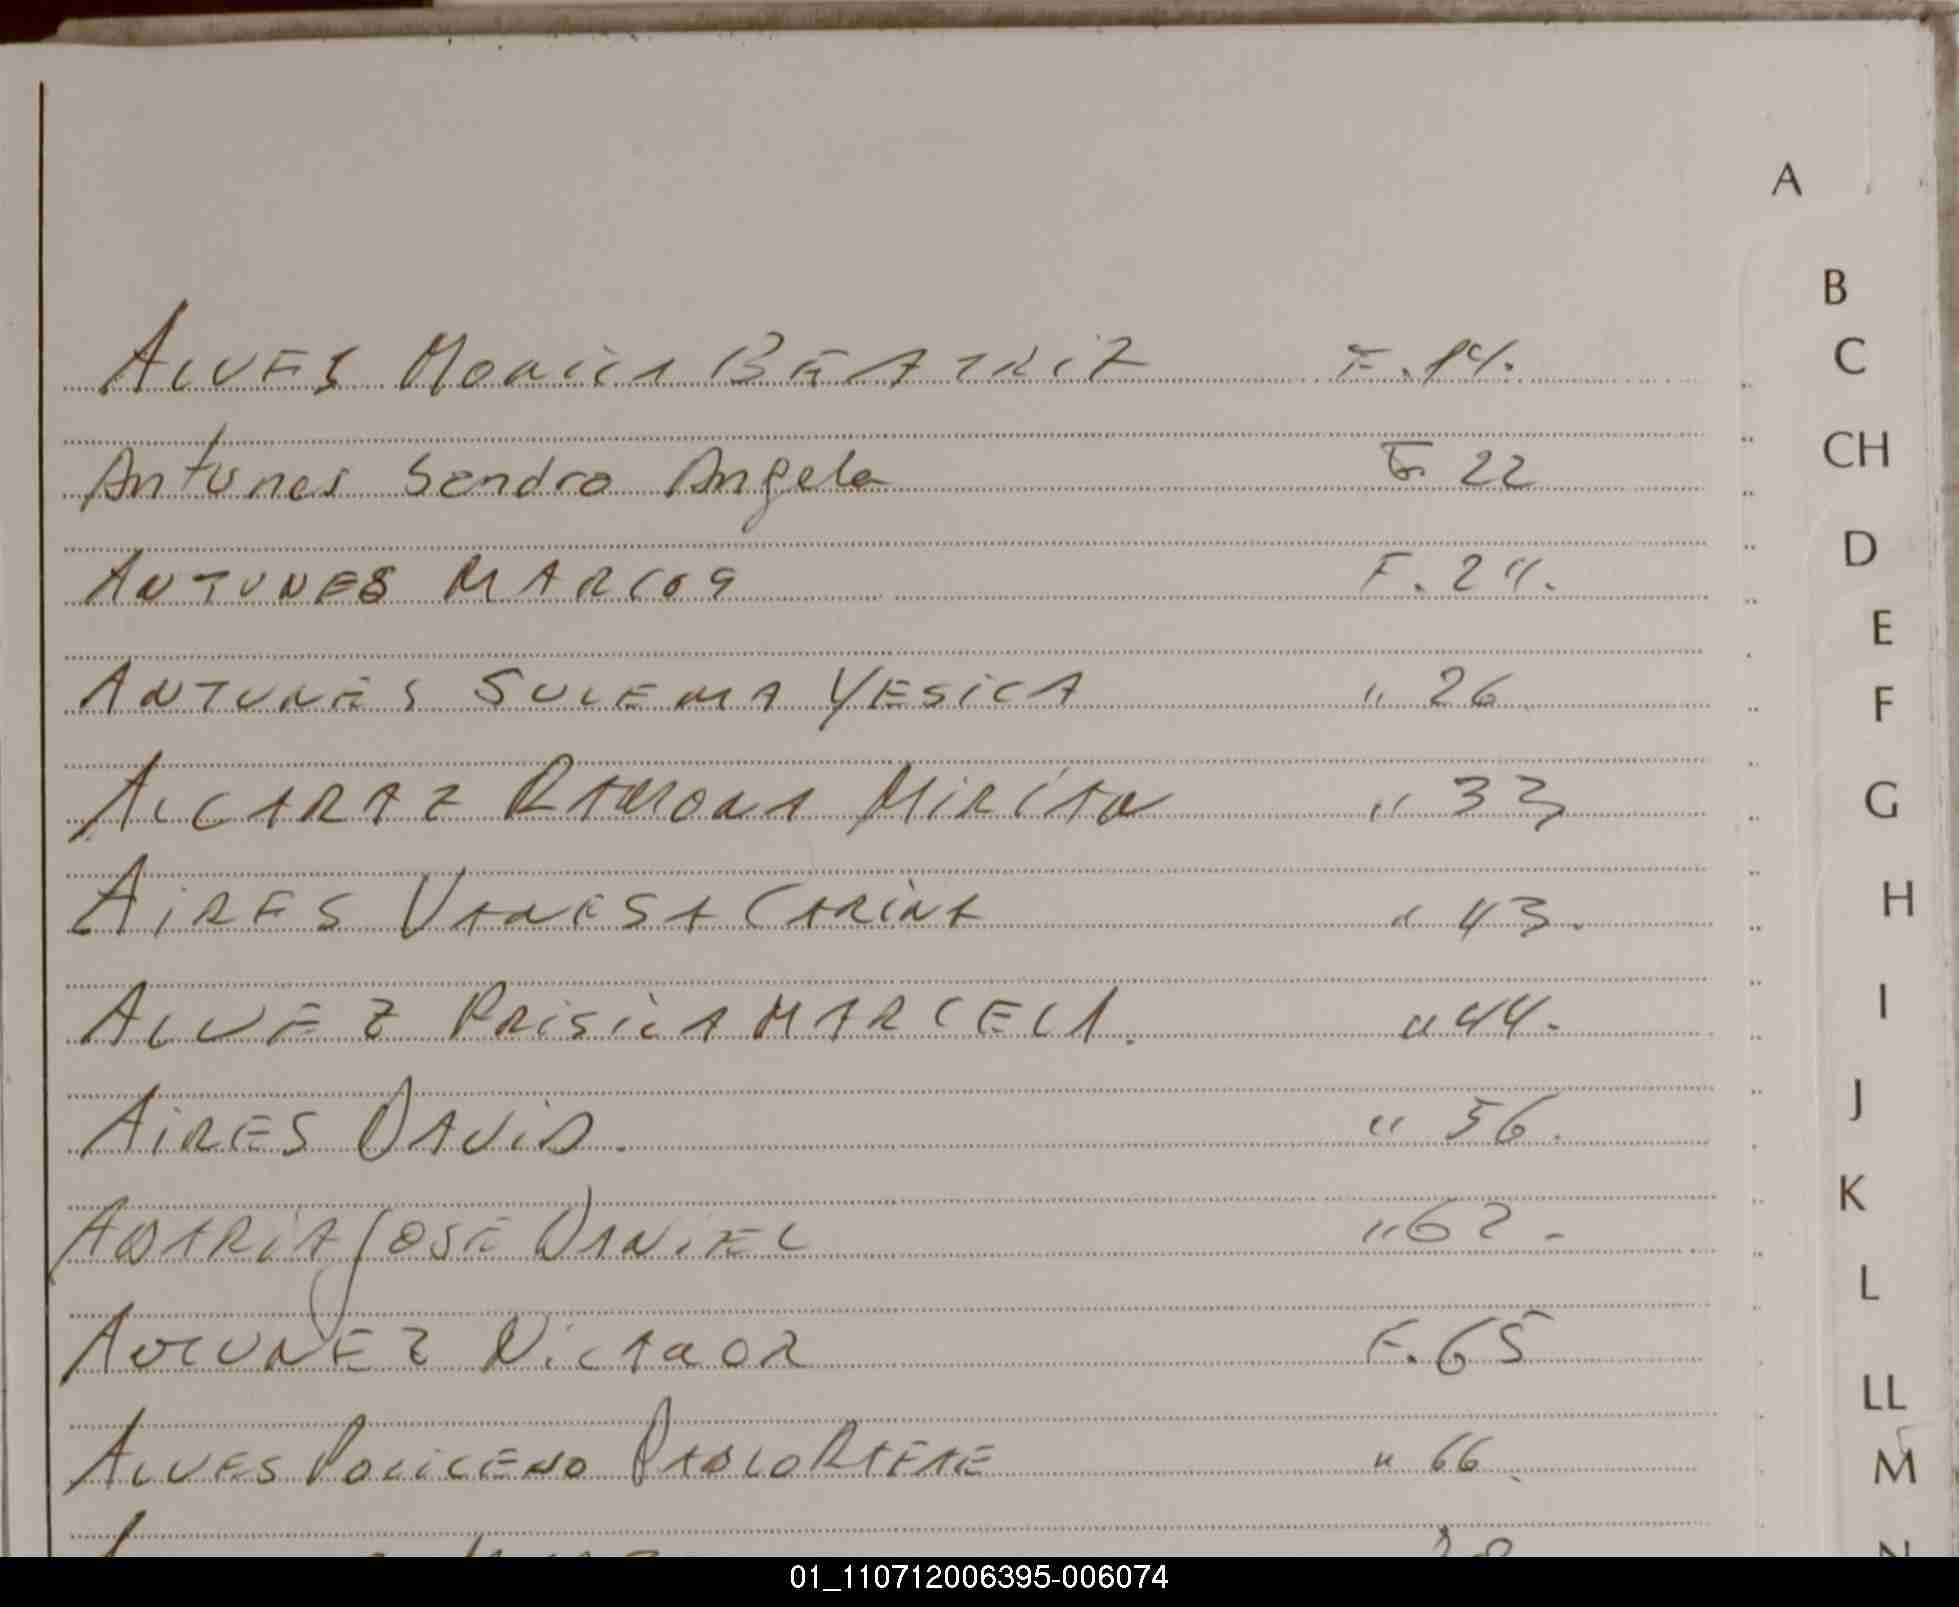 A
B
C
CH
D
E
F
G
H
I
J
K
L
LL
M
N
ALVES MONICA BEATRIZ F. 14.
Antunes Sandra Angela F. 22
ANTUNES MARCOS F. 24.
ANTUNES SULEMA YESICA " 26
ALCARAZ RAMONA MIRIAN " 33
AIRES VANESA CARINA " 43.
ALVEZ PRISILA MARCELA. " 44.
AIRES DAVID. " 56.
JOSE DANIEL " 62.
NICANOR F. 65
ALVES POLICENO PABLO RAFAE " 66.
01_110712006395-006074